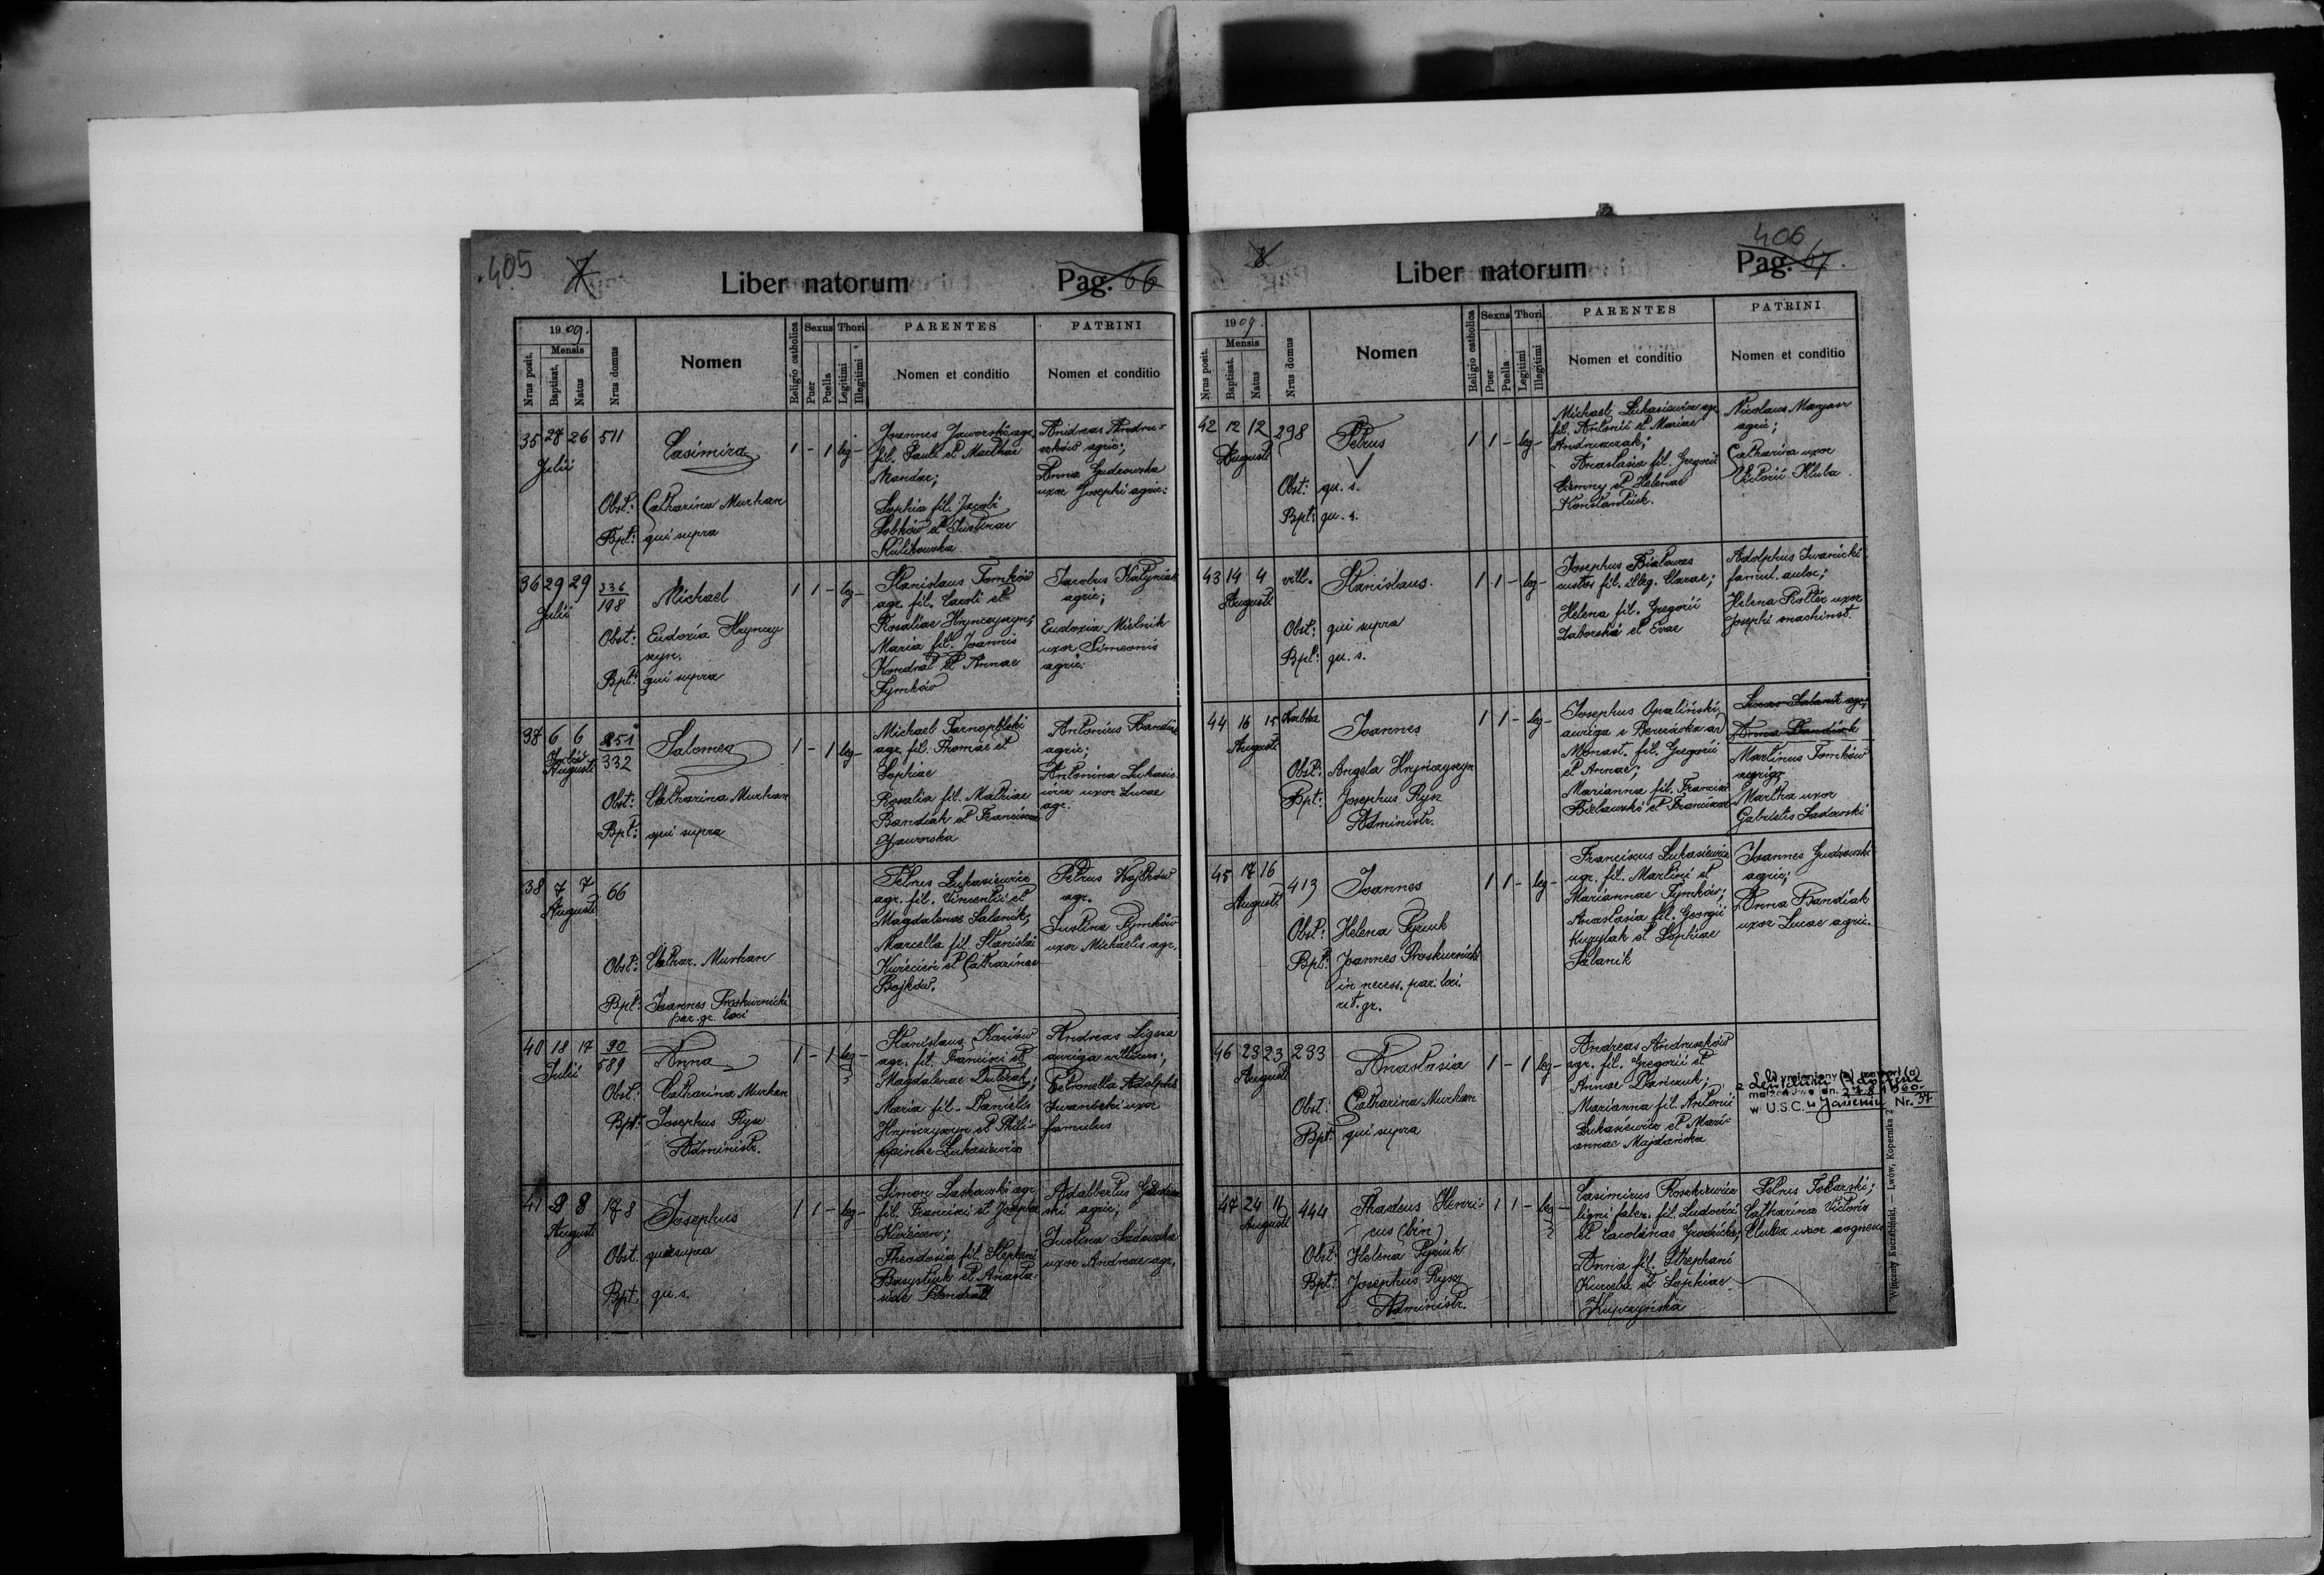 405
7
Liber natorum
Pag. 66
1909.
Mensis
Nrus posit.
Baptisat.
Natus
Nrus domus
Nomen
Religio catholica
Sexus
Puer
Puella
Thori
Legitimi
Illegitimi
PARENTES
Nomen et conditio
PATRINI
Nomen et conditio
35 28 26 511
Julii
Casimira
1 - 1 leg -
Obst: Catharina Murhan
Bpt: qui supra
Joannes Jaworski agr.
fil. Pauli et Marthae
Sophia fil. Jacobi
Sobków et Justinae
Kulikowska
Andreas Andru-
szków agric;
Anna Gudzowska
uxor Josephi agric:
36 29 29 336
198
Julii
Michael
1 1 - leg -
Obst: Eudoxia Hrynczy
szyn.
Bpt: qui supra
Stanislaus Tomków
agr. fil. Caroli et
Rosaliae Hrynczyszyn;
Maria fil. Joannis
Kondrat et Annae
Tymków
Jacobus Kałyniak
agric;
Eudoxia Mielnik
uxor Simeonis
agric:
37 6 6 251
332
Julii
Augusti
Salomea
1 - 1 leg -
Obst: Catharina Murhan
Bpt: qui supra
Michael Tarnopolski
agr. fil. Thomae et
Sophiae
Rosalia fil. Mathiae
Bandiak et Franciscae
Jaworska
Antonius Bandiak
agric;
Antonina Lukasie-
wicz uxor Lucae
agr.
38 7 7 66
Augusti
Obst: Cathar. Murhan
Bpt: Joannes Proskurnicki
par. gr. loci
Petrus Lukasiewicz
agr. fil. Vincentii et
Magdalenae Salanik;
Marcella fil. Stanislai
Kuriecien et Catharinae
Bojków.
Petrus Wojtków
agr.
Justina Tymków
uxor Michaelis agr.
40 18 17 90
589
Julii
Anna
1 - 1 leg -
Obst: Catharina Murhan
Bpt: Josephus Rysz
Administr.
Stanislaus Kariów
agr. fil. Francisci et
Magdalenae Duterak;
Maria fil. Danielis
Hrynczyszyn et Phili-
ppinae Lukasiewicz
Andreas Ligaza
auriga
Petronella Adolphi
Iwanicki uxor
famulus
41 8 8 178
Augusti
Josephus
1 1 - leg -
Obst. qui supra
Bpt. qu. s.
Simon Laskowski agr.
fil. Francisci et Josepha
Kuriecien;
Theodosia fil. Stephani
Basystiuk et Anasta-
siae
Adalbertus
ski agric;
Justina Sadowska
uxor Andreae agr.
406
8
Liber natorum
Pag. 67.
1909.
Mensis
Nrus posit.
Baptisat.
Natus
Nrus domus
Nomen
Religio catholica
Sexus
Puer
Puella
Thori
Legitimi
Illegitimi
PARENTES
Nomen et conditio
PATRINI
Nomen et conditio
42 12 12 298
Augusti
Petrus
1 1 - leg -
Obst: qu. s.
Bpt: qu. s.
Michael Lukasiewicz agr.
fil. Antonii et Mariae
Andruszczak;
Anastasia fil. Gregorii
Ciemny et Helenae
Konstantiuk.
Nicolaus Maryasz
agric;
Catharina uxor
Victorii Kluba
43 14 4 vill.
Augusti
Stanislaus.
1 1 - leg -
Obst: qui supra
Bpt: qu. s.
Josephus Białowas
custos fil. illeg. Clarae;
Helena fil. Gregorii
Zaborski et Evae
Adolphus Iwanicki
famul. aulic;
Helena Rotter uxor
Josephi machinist.
44 16 15 Korbka
Augusti
Joannes
1 1 - leg -
Obst: Angela Hrynczyszyn
Bpt: Josephus Rysz
Administr.
Josephus Opaliński
auriga e Berezówka ad
Monast. fil. Gregorii
et Annae;
Marianna fil. Francisci
Bielawski et Franciscae
Lucas Salanik agr;
Anna Bandiak
Martinus Tomków
auriga
Martha uxor
Gabrielis Sadowski
45 17 16 413
August.
Joannes
1 1 - leg -
Obst: Helena Pyziuk
Bpt: Joannes Proskurnicki
in necess. par. loci
rit. gr.
Franciscus Lukasiewicz
agr. fil. Martini et
Mariannae Tymków;
Anastasia fil. Georgii
Kuzylak et Sophiae
Salanik
Joannes Gudzowski
agric;
Anna Bandiak
uxor Lucae agric.
46 23 23 233
Augusti
Anastasia
1 - 1 leg -
Obst: Catharina Murhan
Bpt: qui supra
Andreas Andruszków
agr. fil. Gregorii et
Annae Dańczuk;
Marianna fil. Antonii
Lukasiewicz et Mari-
annae Majdańska
Wymieniony (a) zawarł (a)
27.8.1960.
w U.S.C. w Nr. 37
47 24 11 444
Augusti
Thadeus Henri-
cus (bin)
1 1 - leg -
Obst: Helena Pyziuk
Bpt: Josephus Rysz
Administr.
Casimirus Roszkiewicz
ligni faber. fil. Ludovici
et Carolinae Grodzicka;
Anna fil. Stephani
Kurceba et Sophiae
Kupczyńska
Petrus Tokarski;
Catharina Victoris
Kluba uxor
Wincenty Kuczabiński. — Lwów, Kopernika 2